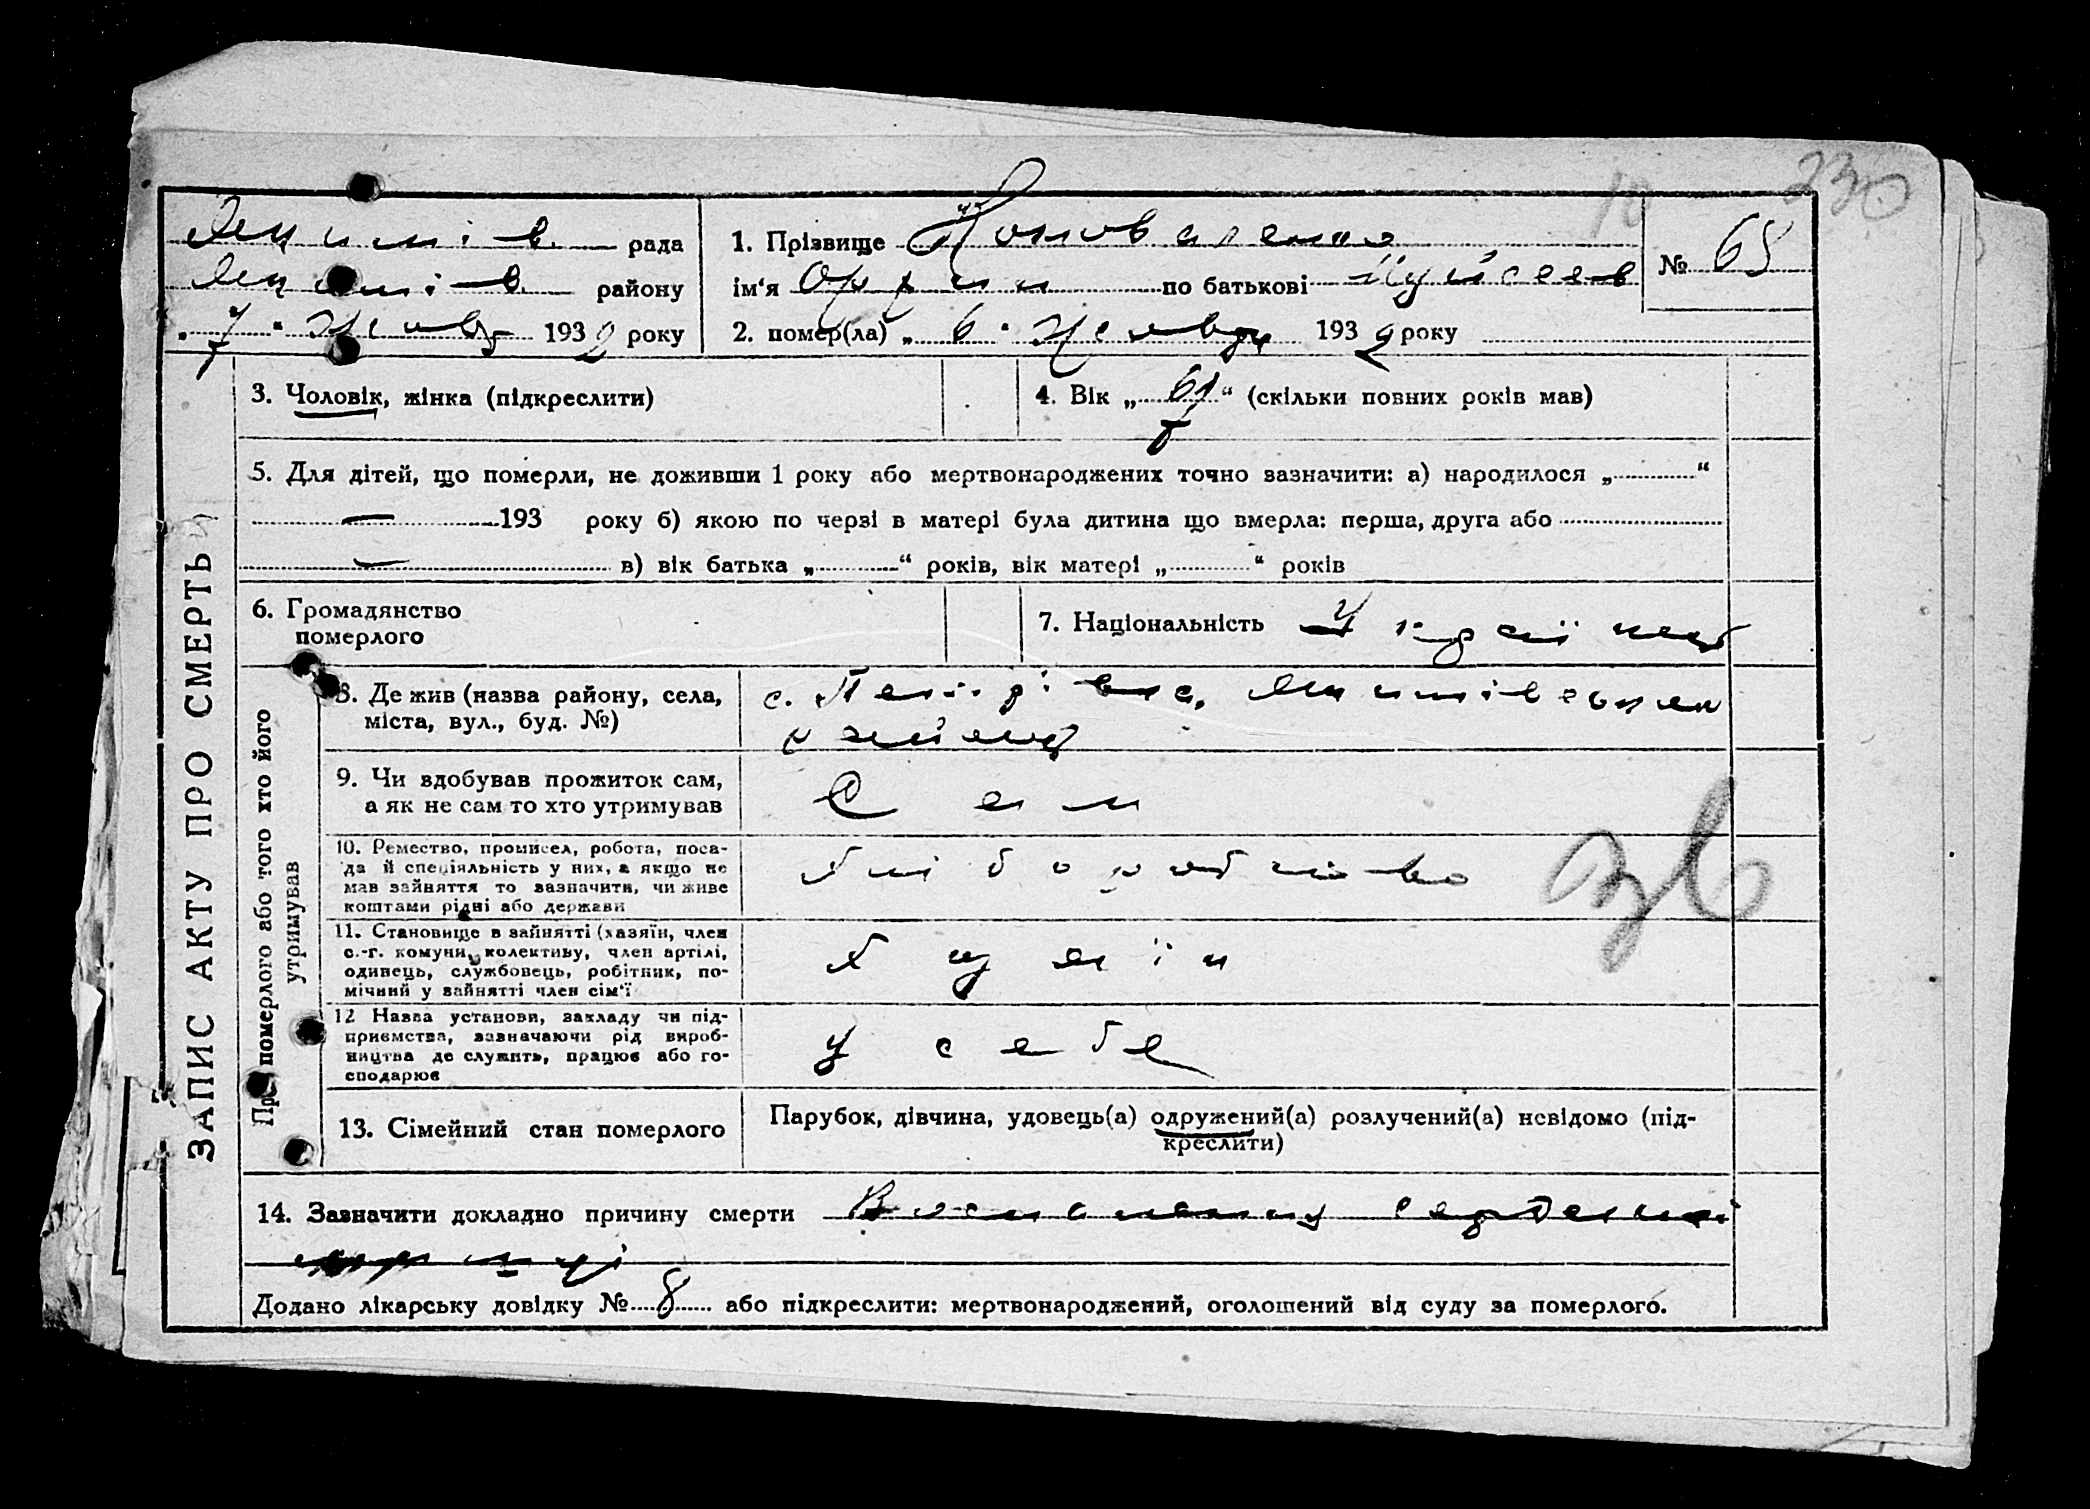 230
10
рада
району
„ 7 “ 1932 року
1. Прізвище Коноваленко
ім'я по батькові
2. помер(ла) „ 6 “ 1932 року
№ 68
ЗАПИС АКТУ ПРО СМЕРТЬ
3. Чоловік, жінка (підкреслити)
4. Вік „ 67 “ (скільки повних років мав)
5. Для дітей, що померли, не доживши 1 року або мертвонароджених точно зазначити: а) народилося „ “
— 193 року б) якою по черзі в матері була дитина що вмерла: перша, друга або
— в) вік батька „ “ років, вік матері „ “ років
6. Громадянство
померлого
7. Національність Українец
Про померлого або того хто його
утримував
8. Де жив (назва району, села,
міста, вул., буд. №)
с. Петрівка,
району
9. Чи вдобував прожиток сам,
а як не сам то хто утримував
Сам
10. Ремество, промисел, робота, поса-
да й спеціяльність у них, а якщо не
мав зайняття то зазначити, чи живе
коштами рідні або держави
Хліборобство
11. Становище в зайнятті (хазяїн, член
с.-г. комуни, колективу, член артілі,
одинець, службовець, робітник, по-
мічний у зайнятті член сім'ї
Хазяїн
12 Назва установи, закладу чи під-
приємства, зазначаючи рід вироб-
ництва де служить, працює або го-
сподарює
У себе
13. Сімейний стан померлого
Парубок, дівчина, удовець(а) одружений(а) розлучений(а) невідомо (під-
креслити)
14. Зазначити докладно причину смерти
Додано лікарську довідку № 8 або підкреслити: мертвонароджений, оголошений від суду за померлого.